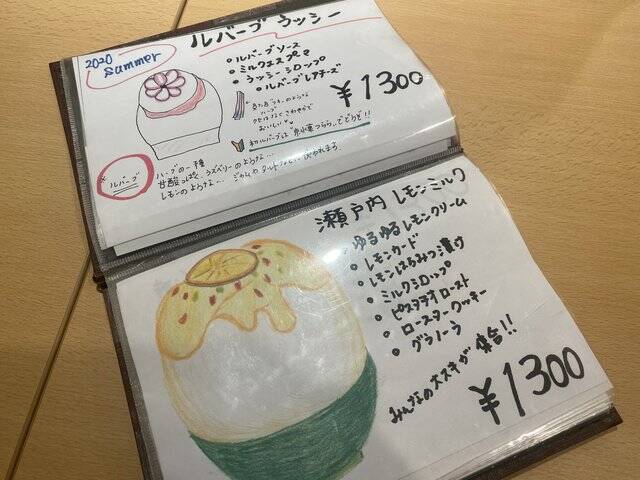 2020 summer
ルバーブラッシー
• ルバーブソース
• ミルクエスプーマ
• ラッシーシロップ
• ルバーブレアチーズ
¥1300
おいしい
和ルバーブは"氷小菓つらら"でどうぞ!!
ルバーブ
ハーブの一種
甘酸っぱく、ラズベリーのような…
レモンのような…
瀬戸内レモンミルク
• ゆるゆるレモンクリーム
• レモンカード
• レモンはちみつ漬け
• ミルクシロップ
• ピスタチオロースト
• ロータスクッキー
• グラノーラ
みんなの大スキが集合!!
¥1300